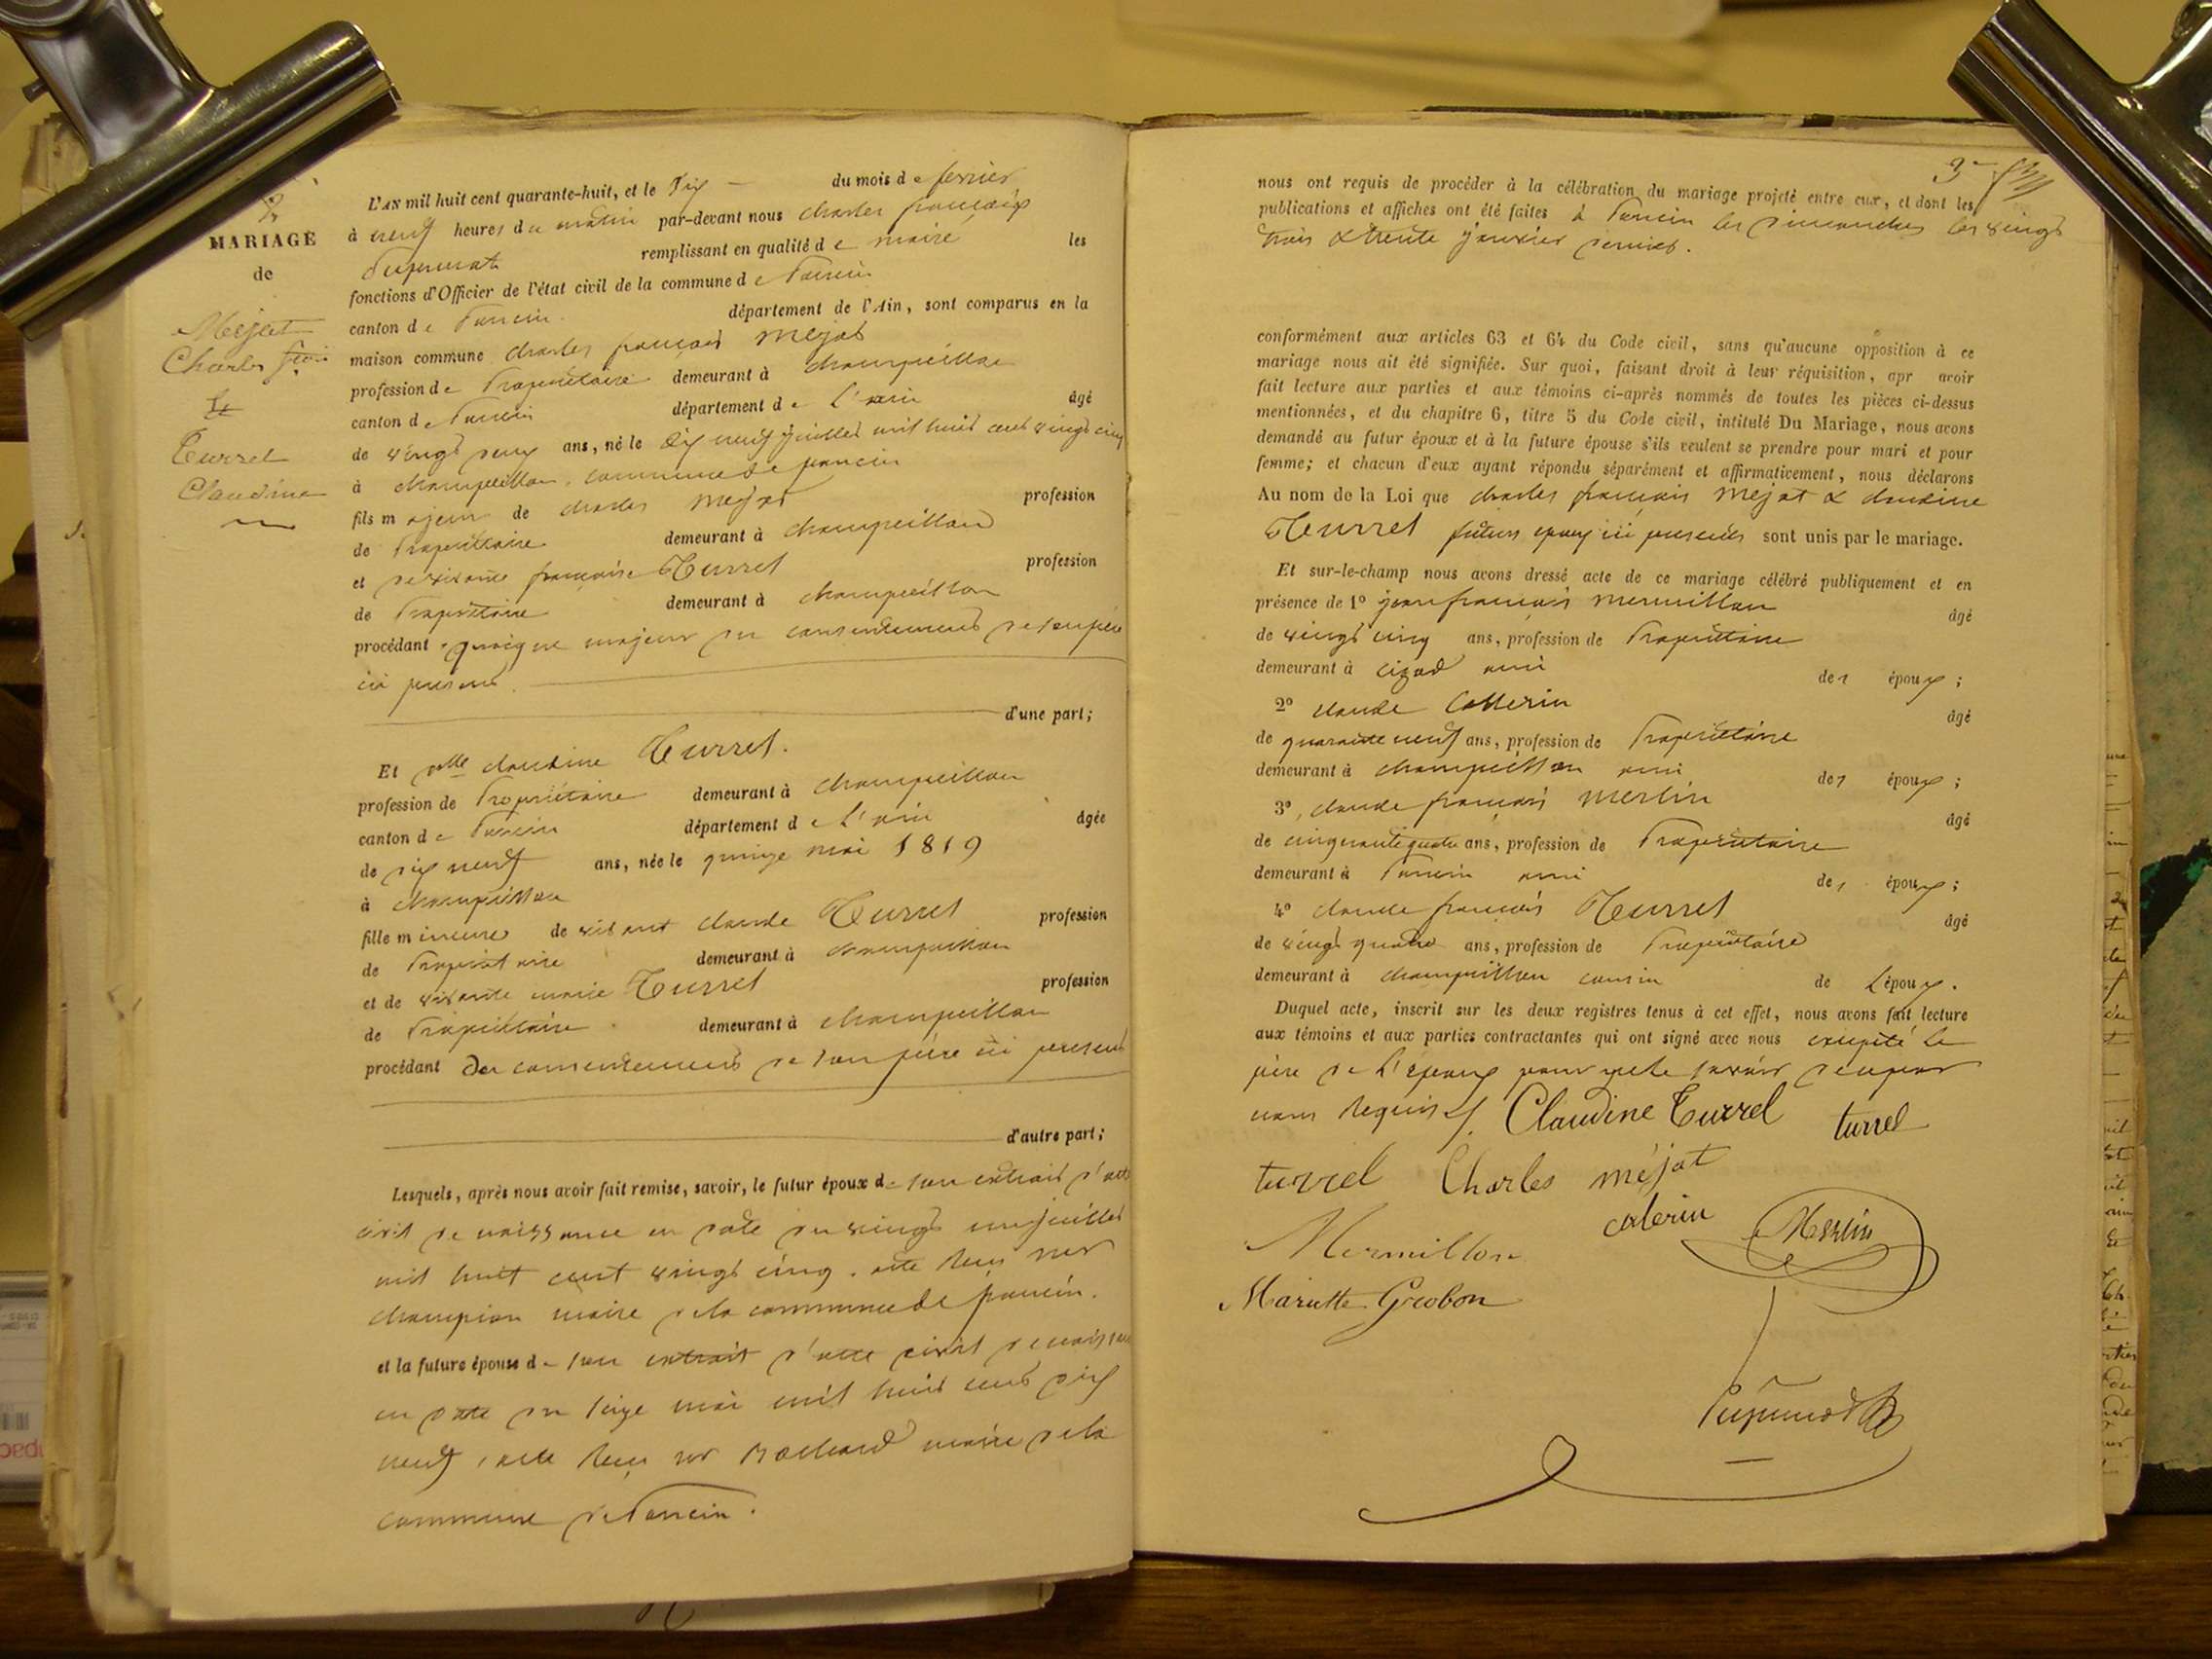 2
MARIAGE
de
Mejat
Charles fçois
&
Turrel
Claudine
L'AN mil huit cent quarante-huit, et le Dix du mois de fevrier
à neuf heures du matin par-devant nous charles françois
remplissant en qualité de maire les
fonctions d'Officier de l'état civil de la commune de Poncin
canton de Poncin département de l'Ain, sont comparus en la
maison commune charles françois Mejat
profession de Propriétaire demeurant à champeillon
canton de Poncin département de L'ain âgé
de vingt deux ans, né le dix neuf juillet mil huit cent vingt cinq
à champeillon, commune de poncin
fils majeur de charles Mejat profession
de Propriétaire demeurant à champeillon
et de vivante françoise Turrel profession
de Propriétaire demeurant à champeillon
procédant quoique majeur du consentement de son père
ici present.
d'une part;
Et dlle claudine Turrel.
profession de Propriétaire demeurant à champeillon
canton de Poncin département de L'ain âgée
de dix neuf ans, née le quinze mai 1819
à champeillon
fille mineure de vivant claude Turrel profession
de Propriétaire demeurant à champeillon
et de vivante marie Turrel profession
de Propriétaire demeurant à champeillon
procédant du consentement de son père ici present
d'autre part;
Lesquels, après nous avoir fait remise, savoir, le futur époux de son extrait d'acte
civil de naissance en date du vingt un juillet
mil huit cent vingt cinq. acte reçu Mr
champion maire de la commune de poncin.
et la future épouse de son extrait d'acte civil de naissance
en date du seize mai mil huit cent dix
neuf, acte reçu Mr maire de la
commune de Poncin.
3me
nous ont requis de procéder à la célébration du mariage projeté entre eux, et dont les
publications et affiches ont été faites à Poncin les dimanches les vingt
trois & trente janvier dernier.
conformément aux articles 63 et 64 du Code civil, sans qu'aucune opposition à ce
mariage nous ait été signifiée. Sur quoi, faisant droit à leur réquisition, apr avoir
fait lecture aux parties et aux témoins ci-après nommés de toutes les pièces ci-dessus
mentionnées, et du chapitre 6, titre 5 du Code civil, intitulé Du Mariage, nous avons
demandé au futur époux et à la future épouse s'ils veulent se prendre pour mari et pour
femme; et chacun d'eux ayant répondu séparément et affirmativement, nous déclarons
Au nom de la Loi que charles françois Mejat & claudine
Turrel futurs epoux ici presents sont unis par le mariage.
Et sur-le-champ nous avons dressé acte de ce mariage célébré publiquement et en
présence de 1º jean françois Mermillon âgé
de vingt cinq ans, profession de Propriétaire
demeurant à cizod ami des époux;
2º claude Catterin âgé
de quarante neuf ans, profession de Propriétaire
demeurant à champeillon ami des époux;
3º, claude françois Merlin âgé
de cinquante quatre ans, profession de Propriétaire
demeurant à Poncin ami des époux;
4º claude françois Turrel âgé
de vingt quatre ans, profession de Propriétaire
demeurant à champeillon cousin de L'époux.
Duquel acte, inscrit sur les deux registres tenus à cet effet, nous avons fait lecture
aux témoins et aux parties contractantes qui ont signé avec nous excepté le
père de l'époux pour ne le savoir de ce par
nous requis. Claudine Turrel turrel
turrel Charles méjat
Mermillon caterin Merlin
Mariette Grobon